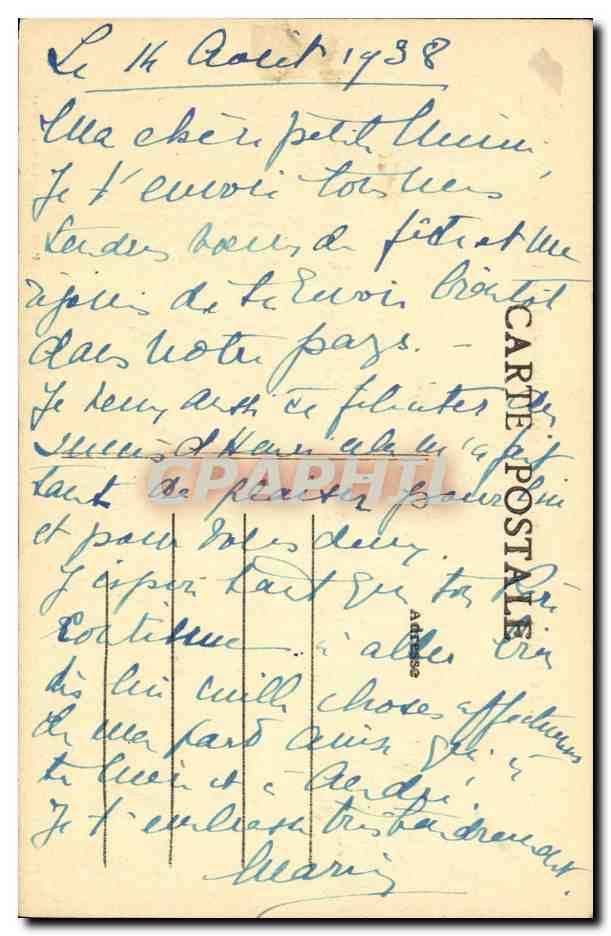 Le 14 Août 1938
Ma chère petite Mimi,
Je t'envoie tous mes
tendres vœux de fête et me
réjouis de te revoir bientôt
dans notre pays. —
Je veux aussi te féliciter du
succès d'Henri cela m'a fait
tant de plaisir pour lui
et pour vous deux.
J'espère tant que ton Père
continue à aller bien
dis lui mille choses affectueuses
de ma part ainsi qu'à
ta et à André.
Je t'embrasse très tendrement.
Marie
CARTE POSTALE
Adresse
CPAPHIL